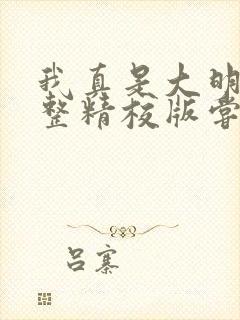 我真是大明
整精校版尝
吕寨